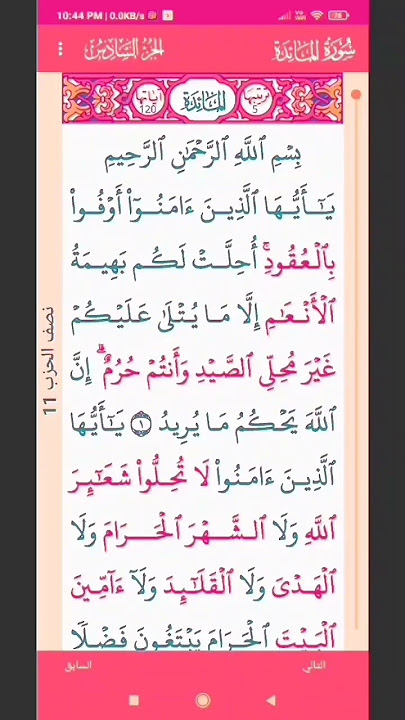 10:44 PM | 0.0KB/s
78
سُورَةُ المَائِدَة
الجُزءُ السَّادِسُ
رتبتها 5
المَائِدَة
آياتها 120
بِسْمِ ٱللَّهِ ٱلرَّحْمَٰنِ ٱلرَّحِيمِ
يَٰٓأَيُّهَا ٱلَّذِينَ ءَامَنُوٓا۟ أَوْفُوا۟
بِٱلْعُقُودِ ۚ أُحِلَّتْ لَكُم بَهِيمَةُ
ٱلْأَنْعَٰمِ إِلَّا مَا يُتْلَىٰ عَلَيْكُمْ
غَيْرَ مُحِلِّى ٱلصَّيْدِ وَأَنتُمْ حُرُمٌ ۗ إِنَّ
ٱللَّهَ يَحْكُمُ مَا يُرِيدُ ١ يَٰٓأَيُّهَا
ٱلَّذِينَ ءَامَنُوا۟ لَا تُحِلُّوا۟ شَعَٰٓئِرَ
ٱللَّهِ وَلَا ٱلشَّهْرَ ٱلْحَرَامَ وَلَا
ٱلْهَدْىَ وَلَا ٱلْقَلَٰٓئِدَ وَلَآ ءَآمِّينَ
ٱلْبَيْتَ ٱلْحَرَامَ يَبْتَغُونَ فَضْلًا
نصف الحزب 11
التالي
السابق